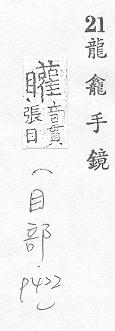 21龍龕手鏡
矔音貫張目
（目部．P422）